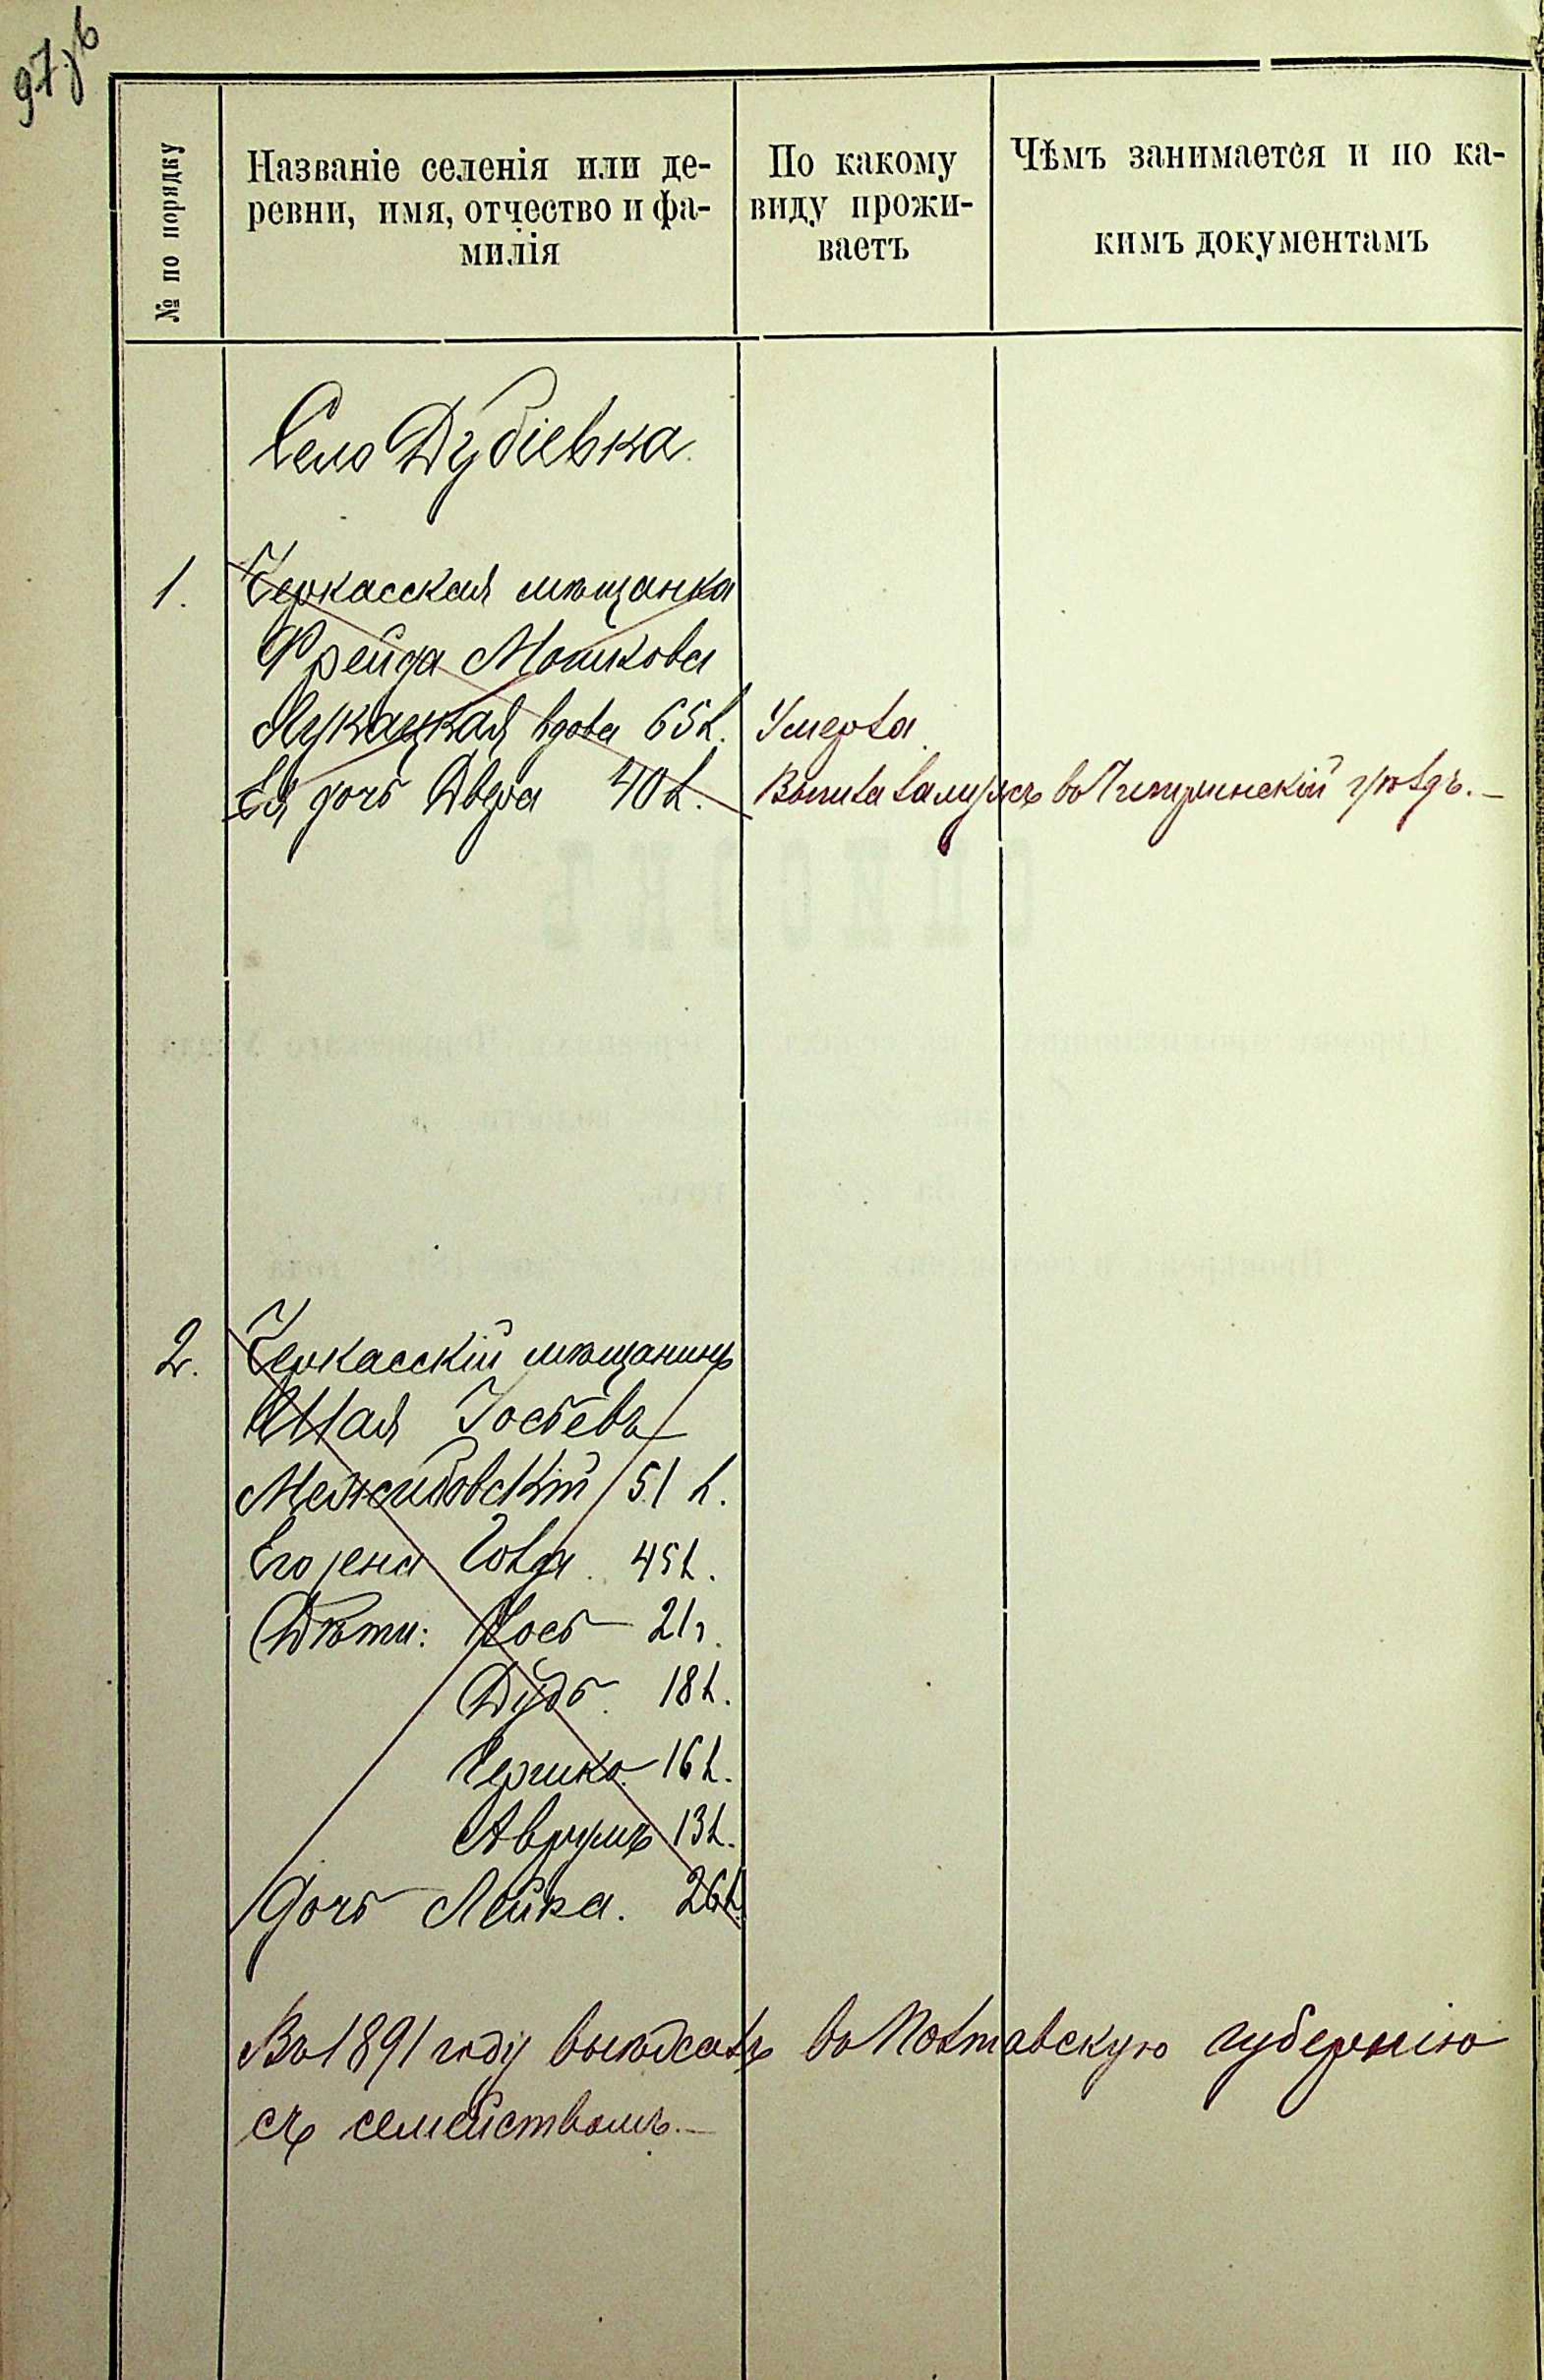 97зв
№ по порядку
Названіе селенія или де-
ревни, имя, отчество и фа-
милія
По какому
виду прожи-
ваетъ
Чѣмъ занимается и по ка-
кимъ документамъ
Село Дубіевка.
1. Черкасская мѣщанка
Фрейда Мошкова
Лукацкая вдова 65 л. Умерла.
Ея дочь Двера 40 л. Вышла замужъ въ Чигиринскій уѣздъ.—
2. Черкасскій мѣщанинъ
Шая Іосьевъ
Межибовскій 51 л.
Его жена Голда. 45 л.
Дѣти: Іось 21 г.
Дудь. 18 л.
Гершко. 16 л.
Аврумъ 13 л.
Дочь Лейка. 26 л.
Въ 1891 году выѣхалъ въ Полтавскую губернію
съ семействомъ.—